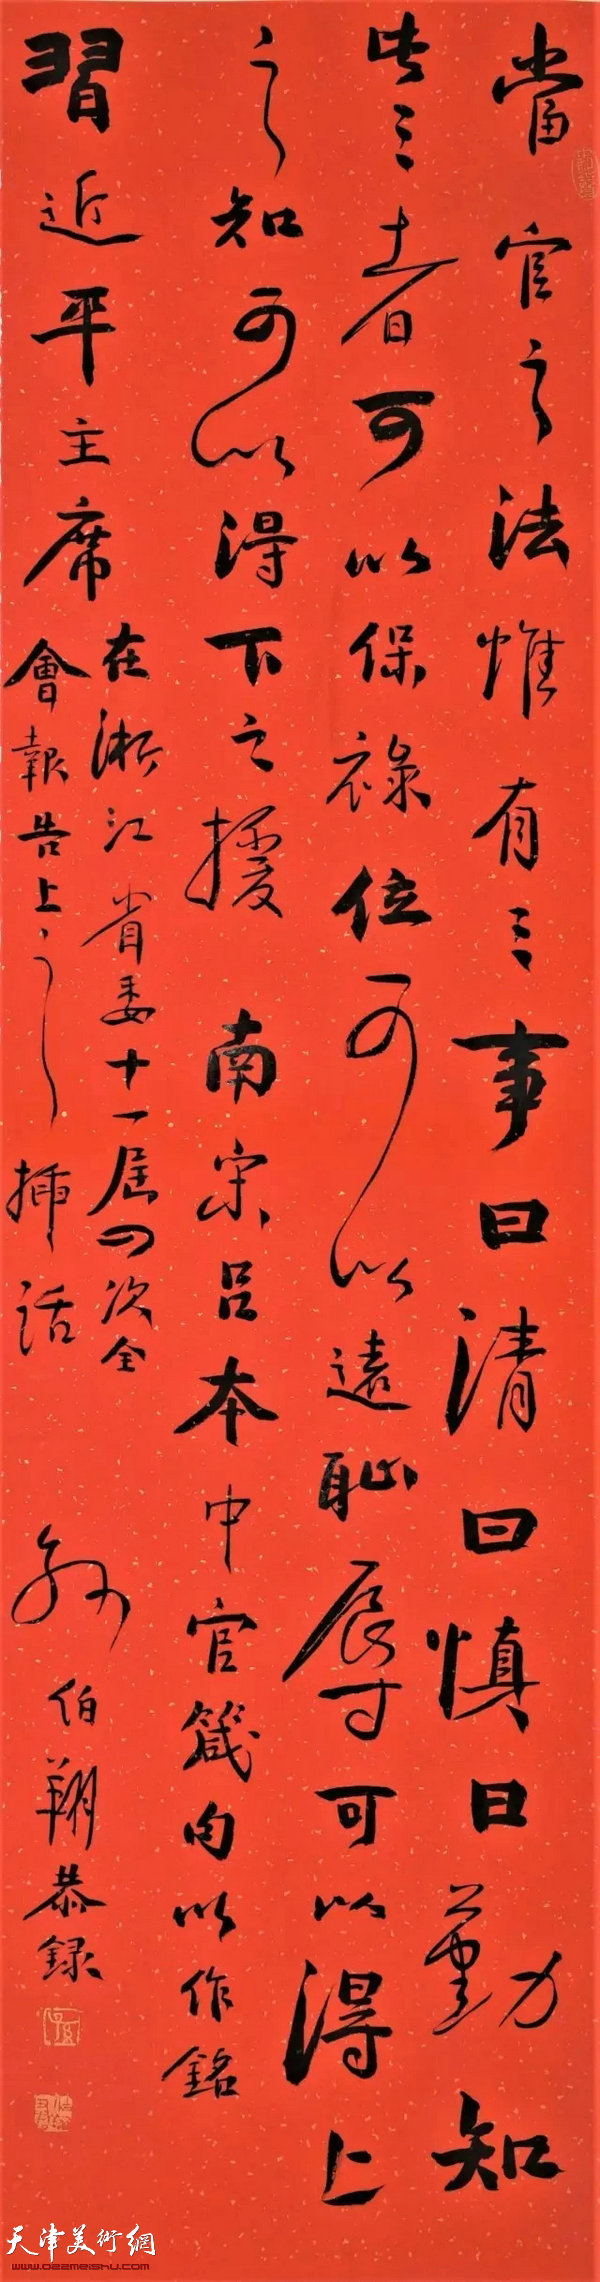 當官之法惟有三事曰清曰慎曰勤知
此三者可以保祿位可以遠恥辱可以得上
之知可以得下之援 南宋吕本中官箴句以作銘
習近平主席
在浙江省委十一届四次全
會報告上之插話
伯翔恭録
天津美術網
www.022meishu.com